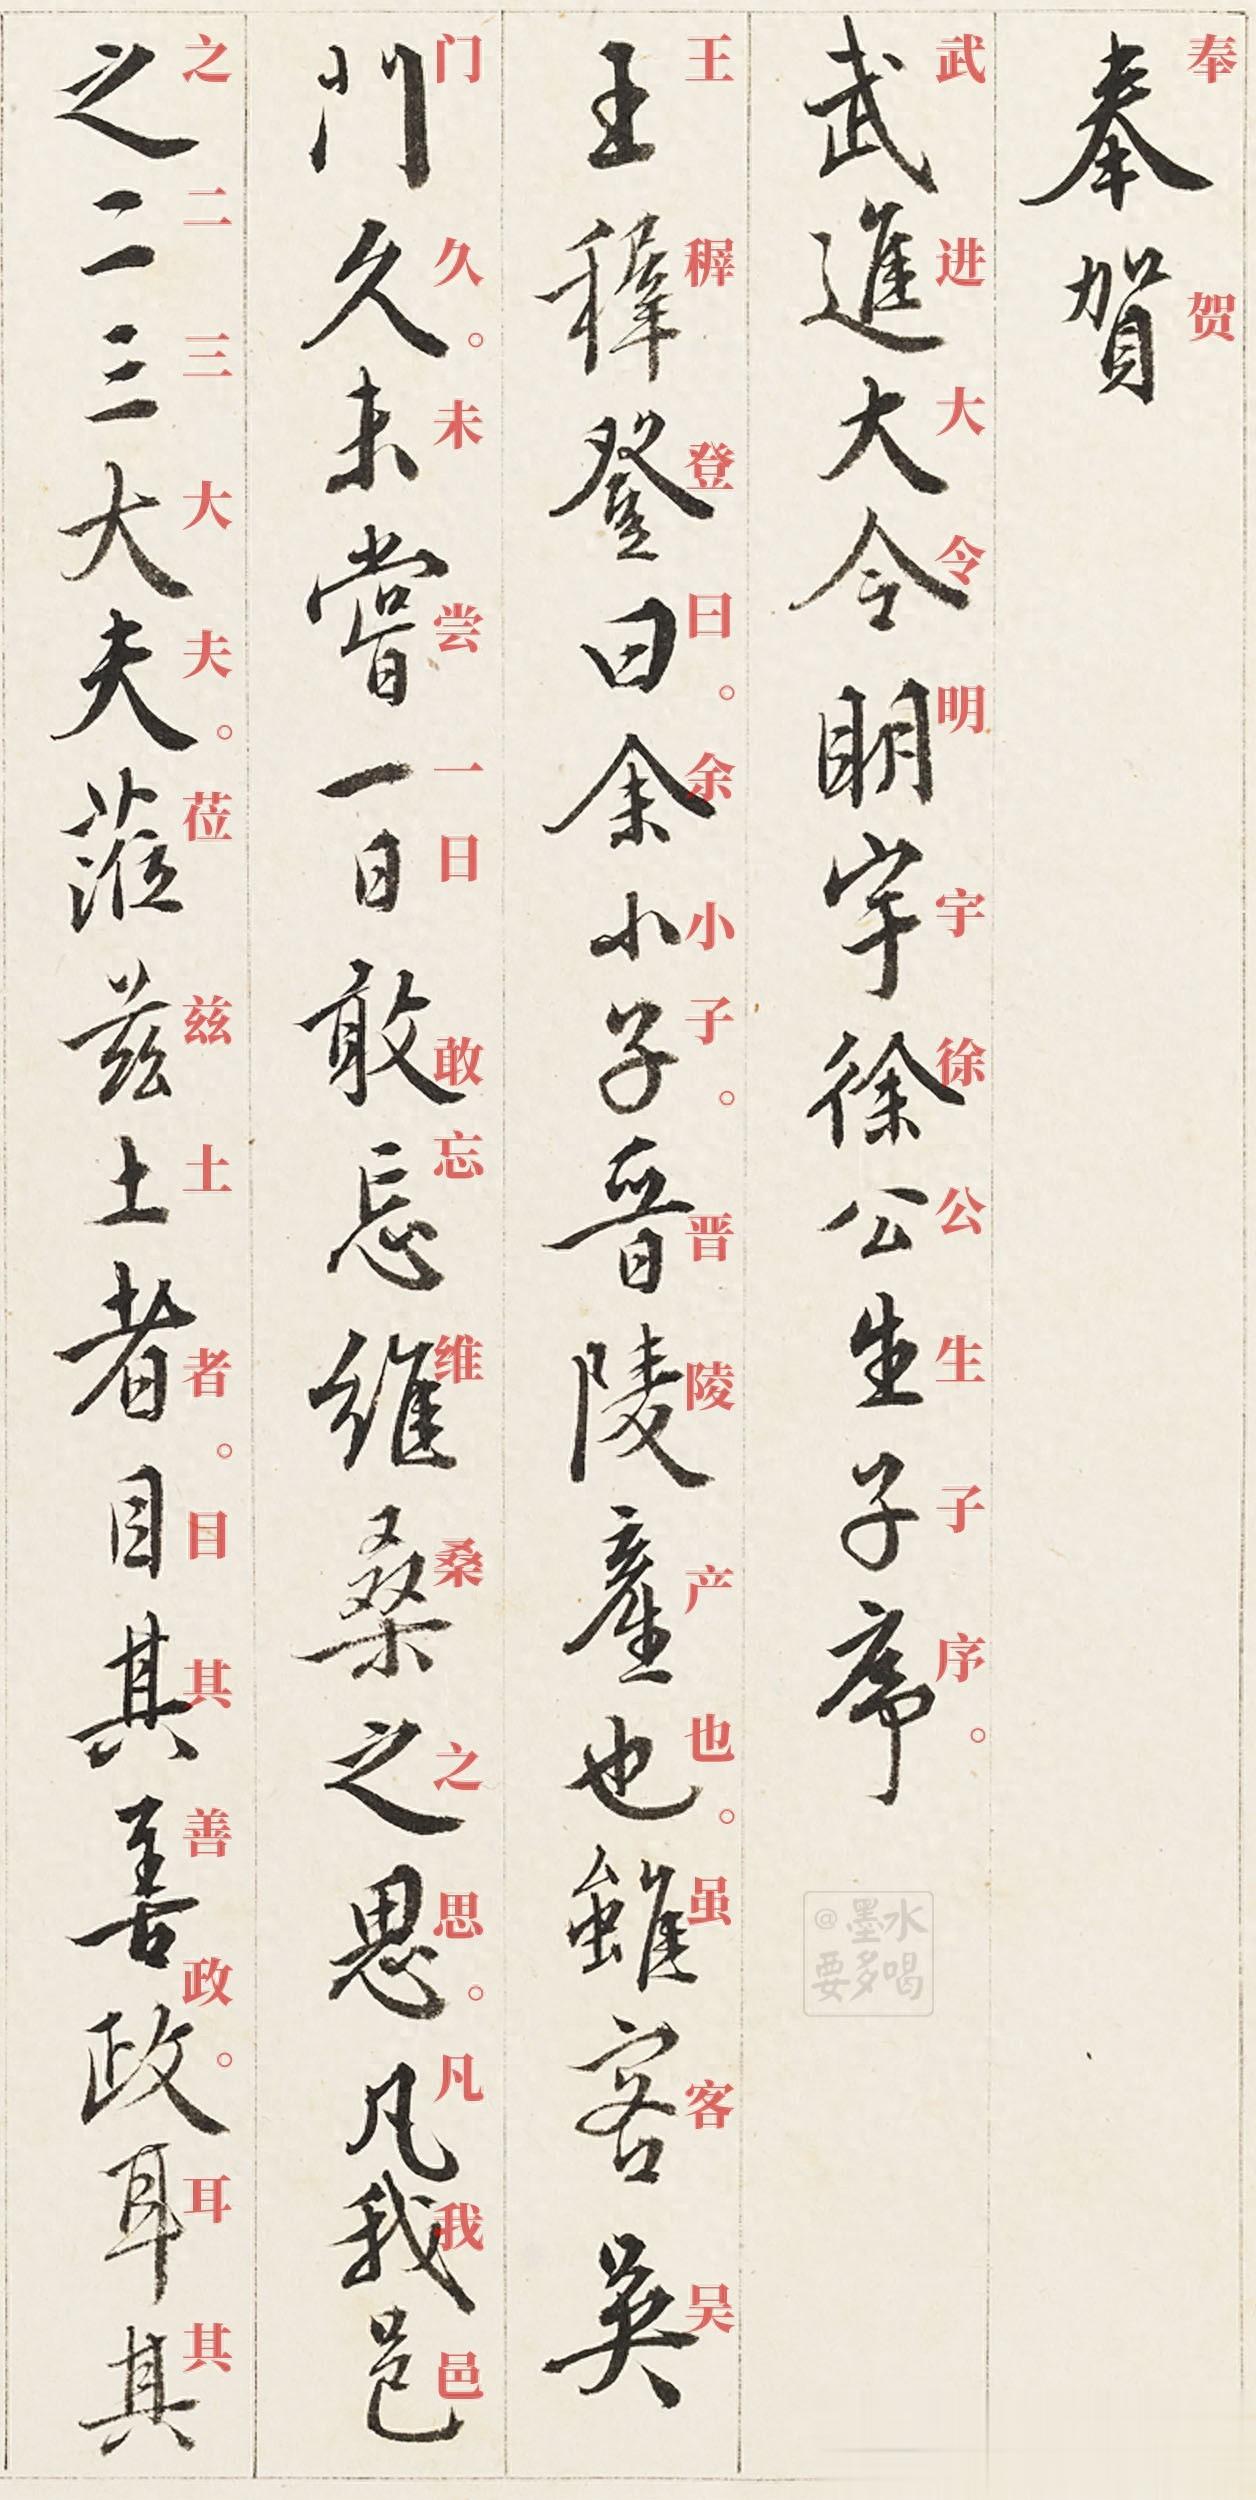 奉贺
奉賀
武进大令明宇徐公生子序。
武進大令明宇徐公生子序
王稺登曰。余小子。晋陵产也。虽客吴
王稺登曰余小子晉陵產也雖客吳
门久。未尝一日敢忘维桑之思。凡我邑
門久未嘗一日敢忘維桑之思凡我邑
之二三大夫。莅兹土者。目其善政。耳其
之二三大夫蒞茲土者目其善政耳其
@墨水
要多喝